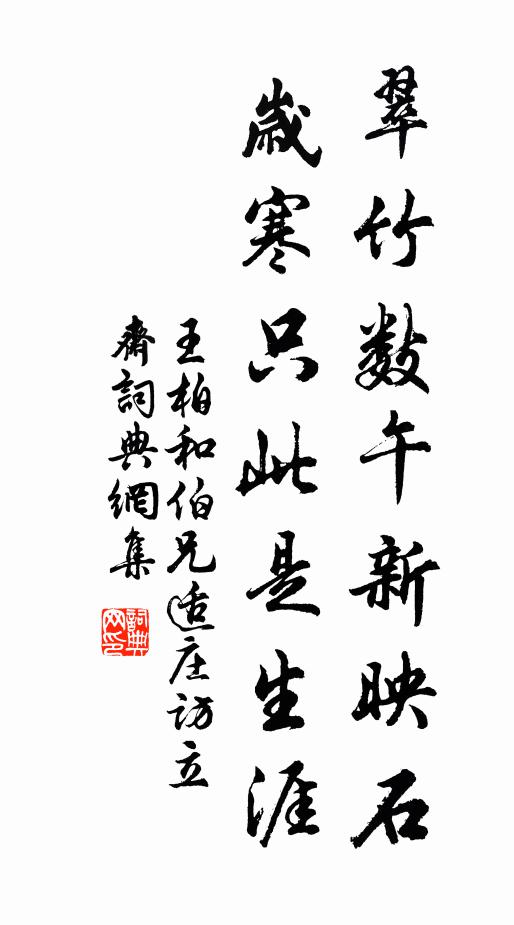 翠竹数午新映石
歲寒只此是生涯
王柏和伯兄适庄访立
齋詞典網集
詞典
网印